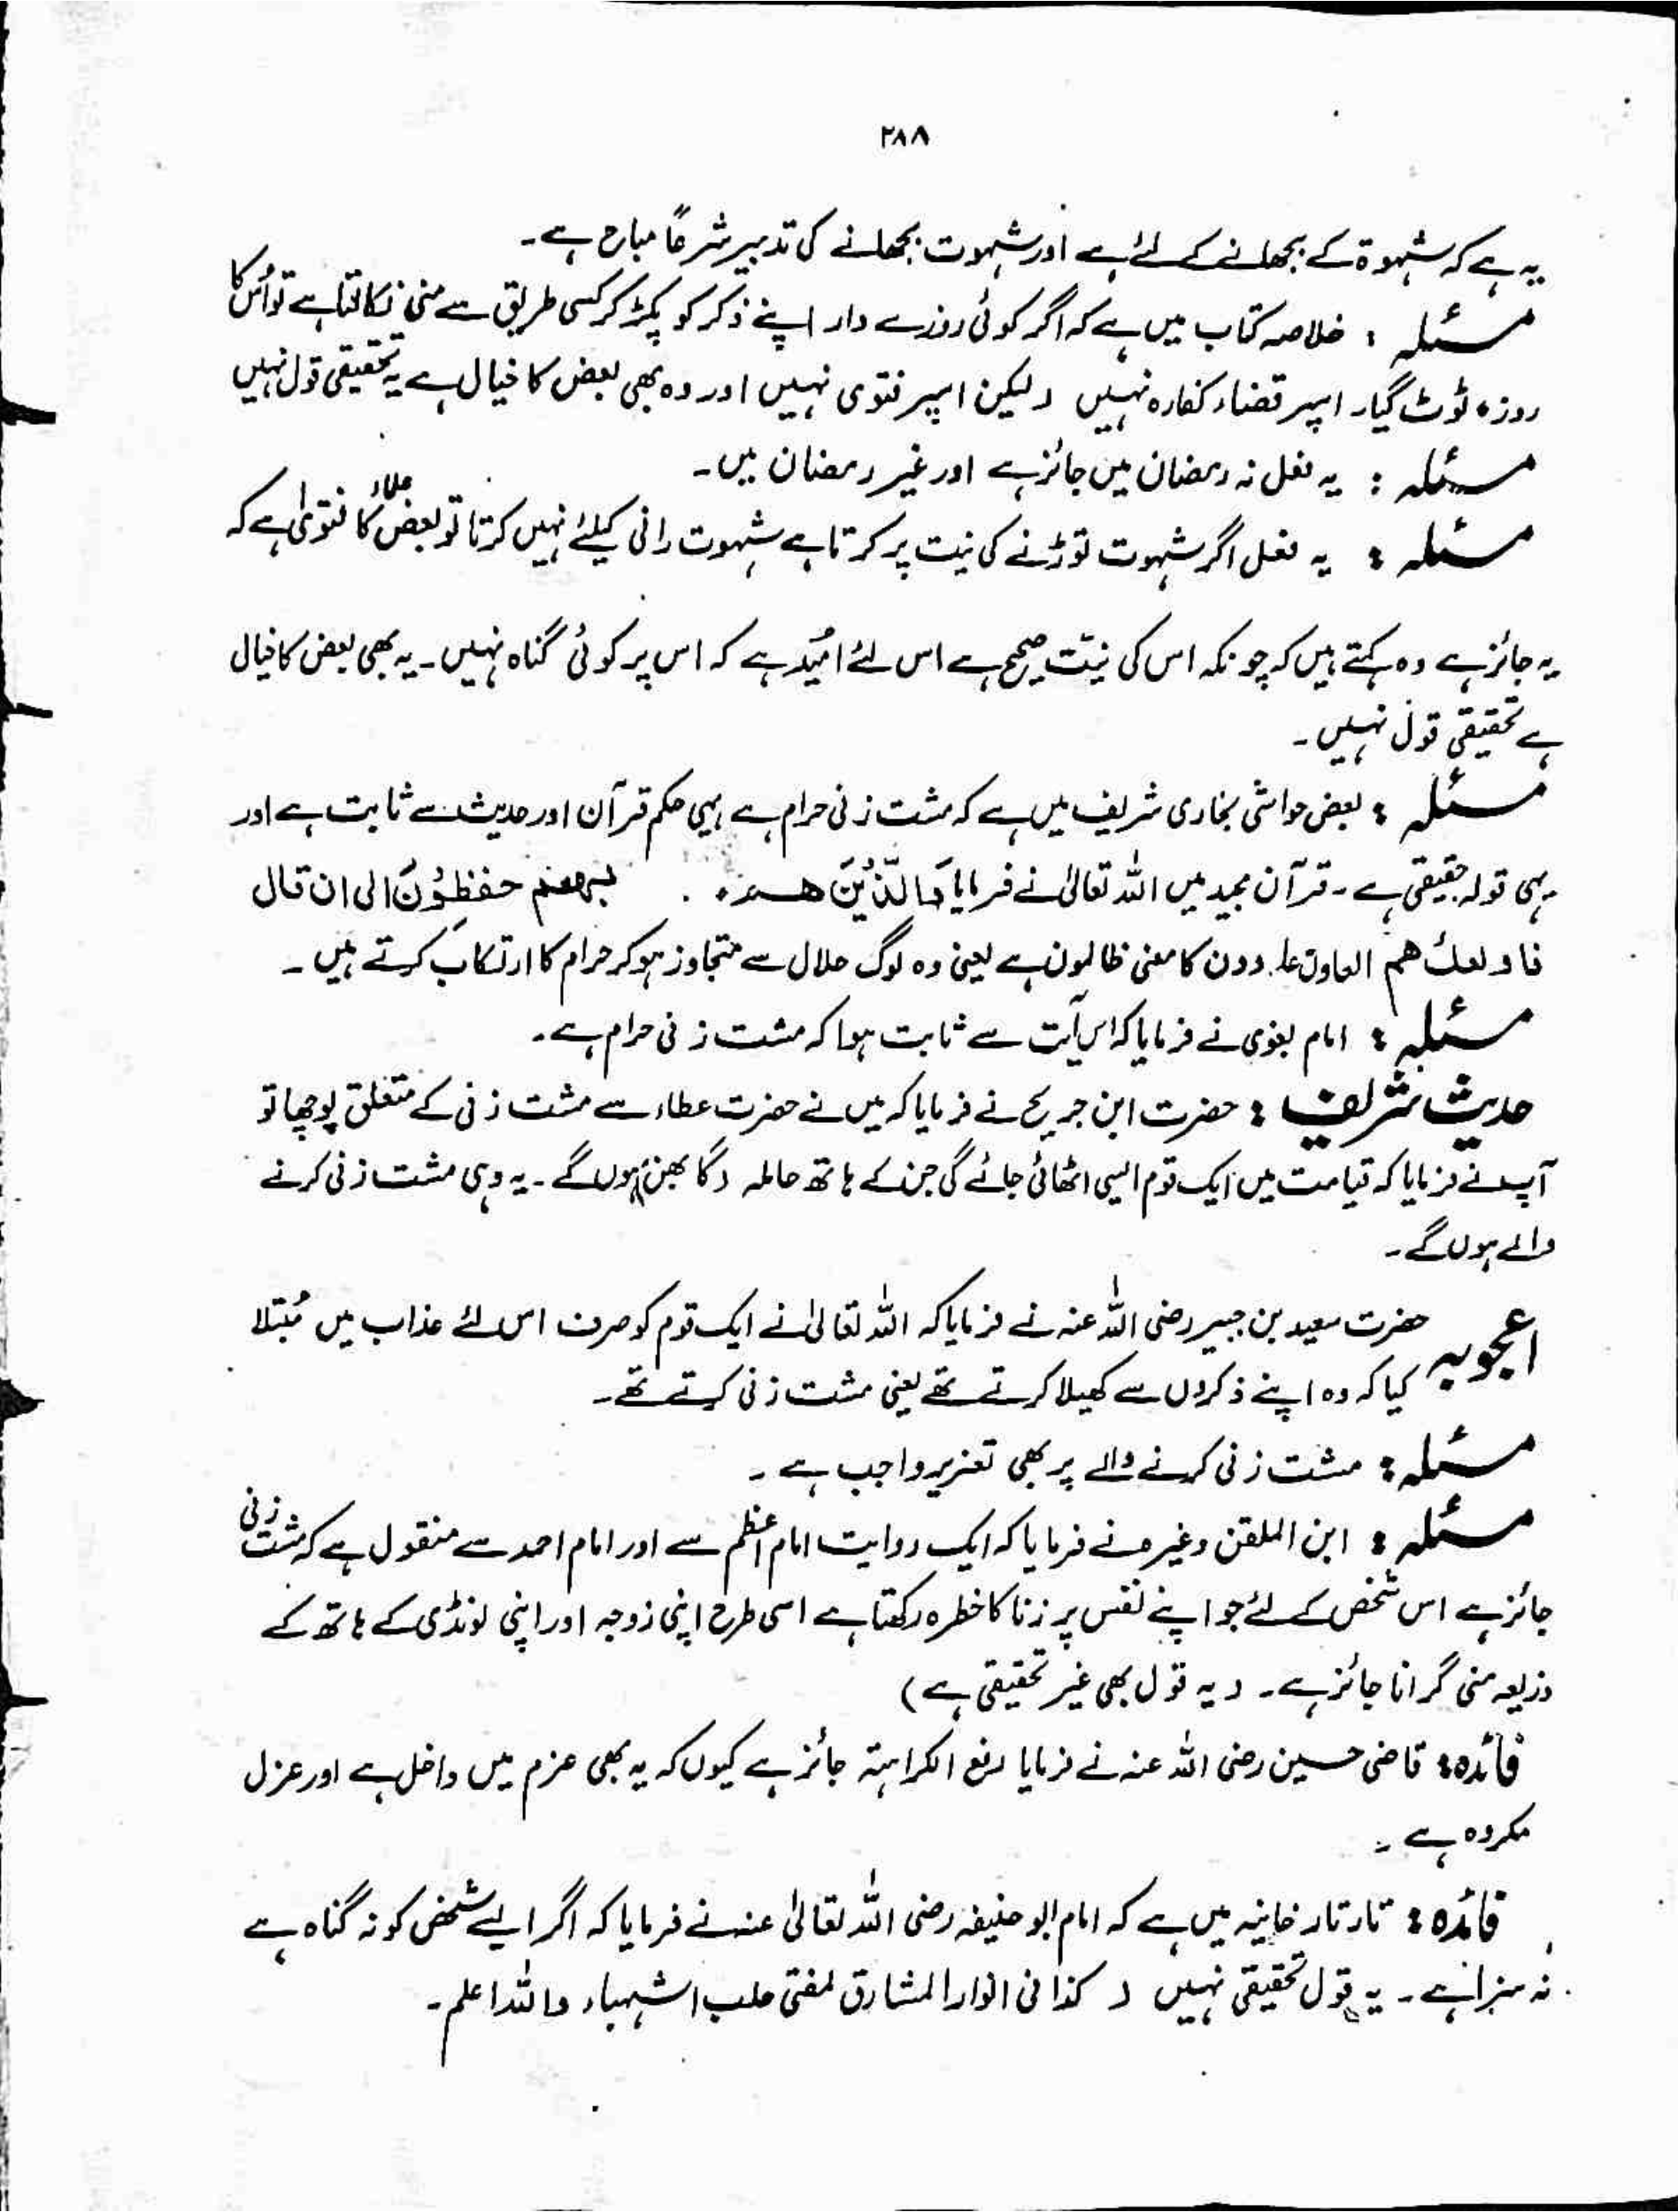 ۲۸۸
یہ ہے کہ شہوۃ کے بجھانے کے لئے ہے اور شہوت بجھانے کی تدبیر شرعاً مباح ہے۔
مسئلہ : خلاصہ کتاب میں ہے کہ اگر کوئی روزے دار اپنے ذکر کو پکڑ کر کسی طریق سے منی نکالتا ہے تو اُس کا
روزہ ٹوٹ گیا۔ اسپر قضاء کفارہ نہیں (لیکن اسپر فتوی نہیں اور وہ بھی بعض کا خیال ہے یہ تحقیقی قول نہیں
مسئلہ : یہ فعل نہ رمضان میں جائز ہے اور غیر رمضان میں۔
مسئلہ : یہ فعل اگر شہوت توڑنے کی نیت پر کرتا ہے شہوت رانی کیلئے نہیں کرتا تو بعض علماء کا فتویٰ ہے کہ
یہ جائز ہے وہ کہتے ہیں کہ چونکہ اس کی نیت صحیح ہے اس لئے امُید ہے کہ اس پر کوئی گناہ نہیں۔ یہ بھی بعض کا خیال
ہے تحقیقی قول نہیں۔
مسئلہ : بعض حواشی بخاری شریف میں ہے کہ مشت زنی حرام ہے یہی حکم قرآن اور حدیث سے ثابت ہے اور
یہی قولہ حقیقی ہے۔ قرآن مجید میں اللہ تعالیٰ نے فرمایا وَالَّذِیْنَ حفظِوُنَ الی ان قال
فاولعك هم العاون عا۔ دون کا معنی ظالمون ہے یعنی وہ لوگ حلال سے متجاوز ہو کر حرام کا ارتکاب کرتے ہیں۔
مسئلہ : امام بغوی نے فرمایا کہ اس آیت سے ثابت ہوا کہ مشت زنی حرام ہے۔
حدیث شریف : حضرت ابن جریح نے فرمایا کہ میں نے حضرت عطاء سے مشت زنی کے متعلق پوچھا تو
آپ نے فرمایا کہ قیامت میں ایک قوم ایسی اٹھائی جائے گی جن کے ہاتھ حاملہ (گا بھن) ہوں گے۔ یہ وہی مشت زنی کرنے
والے ہوں گے۔
اعجوبہ حضرت سعید بن جبیر رضی اللہ عنہ نے فرمایا کہ اللہ تعالیٰ نے ایک قوم کو صرف اس لئے عذاب میں مُبتلا
کیا کہ وہ اپنے ذکروں سے کھیلا کرتے تھے یعنی مشت زنی کرتے تھے۔
مسئلہ : مشت زنی کرنے والے پر بھی تعزیر واجب ہے۔
مسئلہ : ابن الملقن وغیرہ نے فرمایا کہ ایک روایت امام اعظم سے اور امام احمد سے منقول ہے کہ مشت زنی
جائز ہے اس شخص کے لئے جو اپنے نفس پر زنا کا خطرہ رکھتا ہے اسی طرح اپنی زوجہ اور اپنی لونڈی کے ہاتھ کے
ذریعہ منی گرانا جائز ہے۔ (یہ قول بھی غیر تحقیقی ہے)
فائدہ : قاضی حسین رضی اللہ عنہ نے فرمایا رفع الکراہتہ جائز ہے کیوں کہ یہ بھی عزم میں داخل ہے اور عزل
مکروہ ہے۔
فائدہ : تارتار خانیہ میں ہے کہ امام ابو حنیفہ رضی اللہ تعالیٰ عنہ نے فرمایا کہ اگر ایسے شخص کو نہ گناہ ہے
نہ سزا ہے۔ یہ قول تحقیقی نہیں ( کذا فی انوار المشارق لمفتی حلب اشہباء واللہ اعلم۔